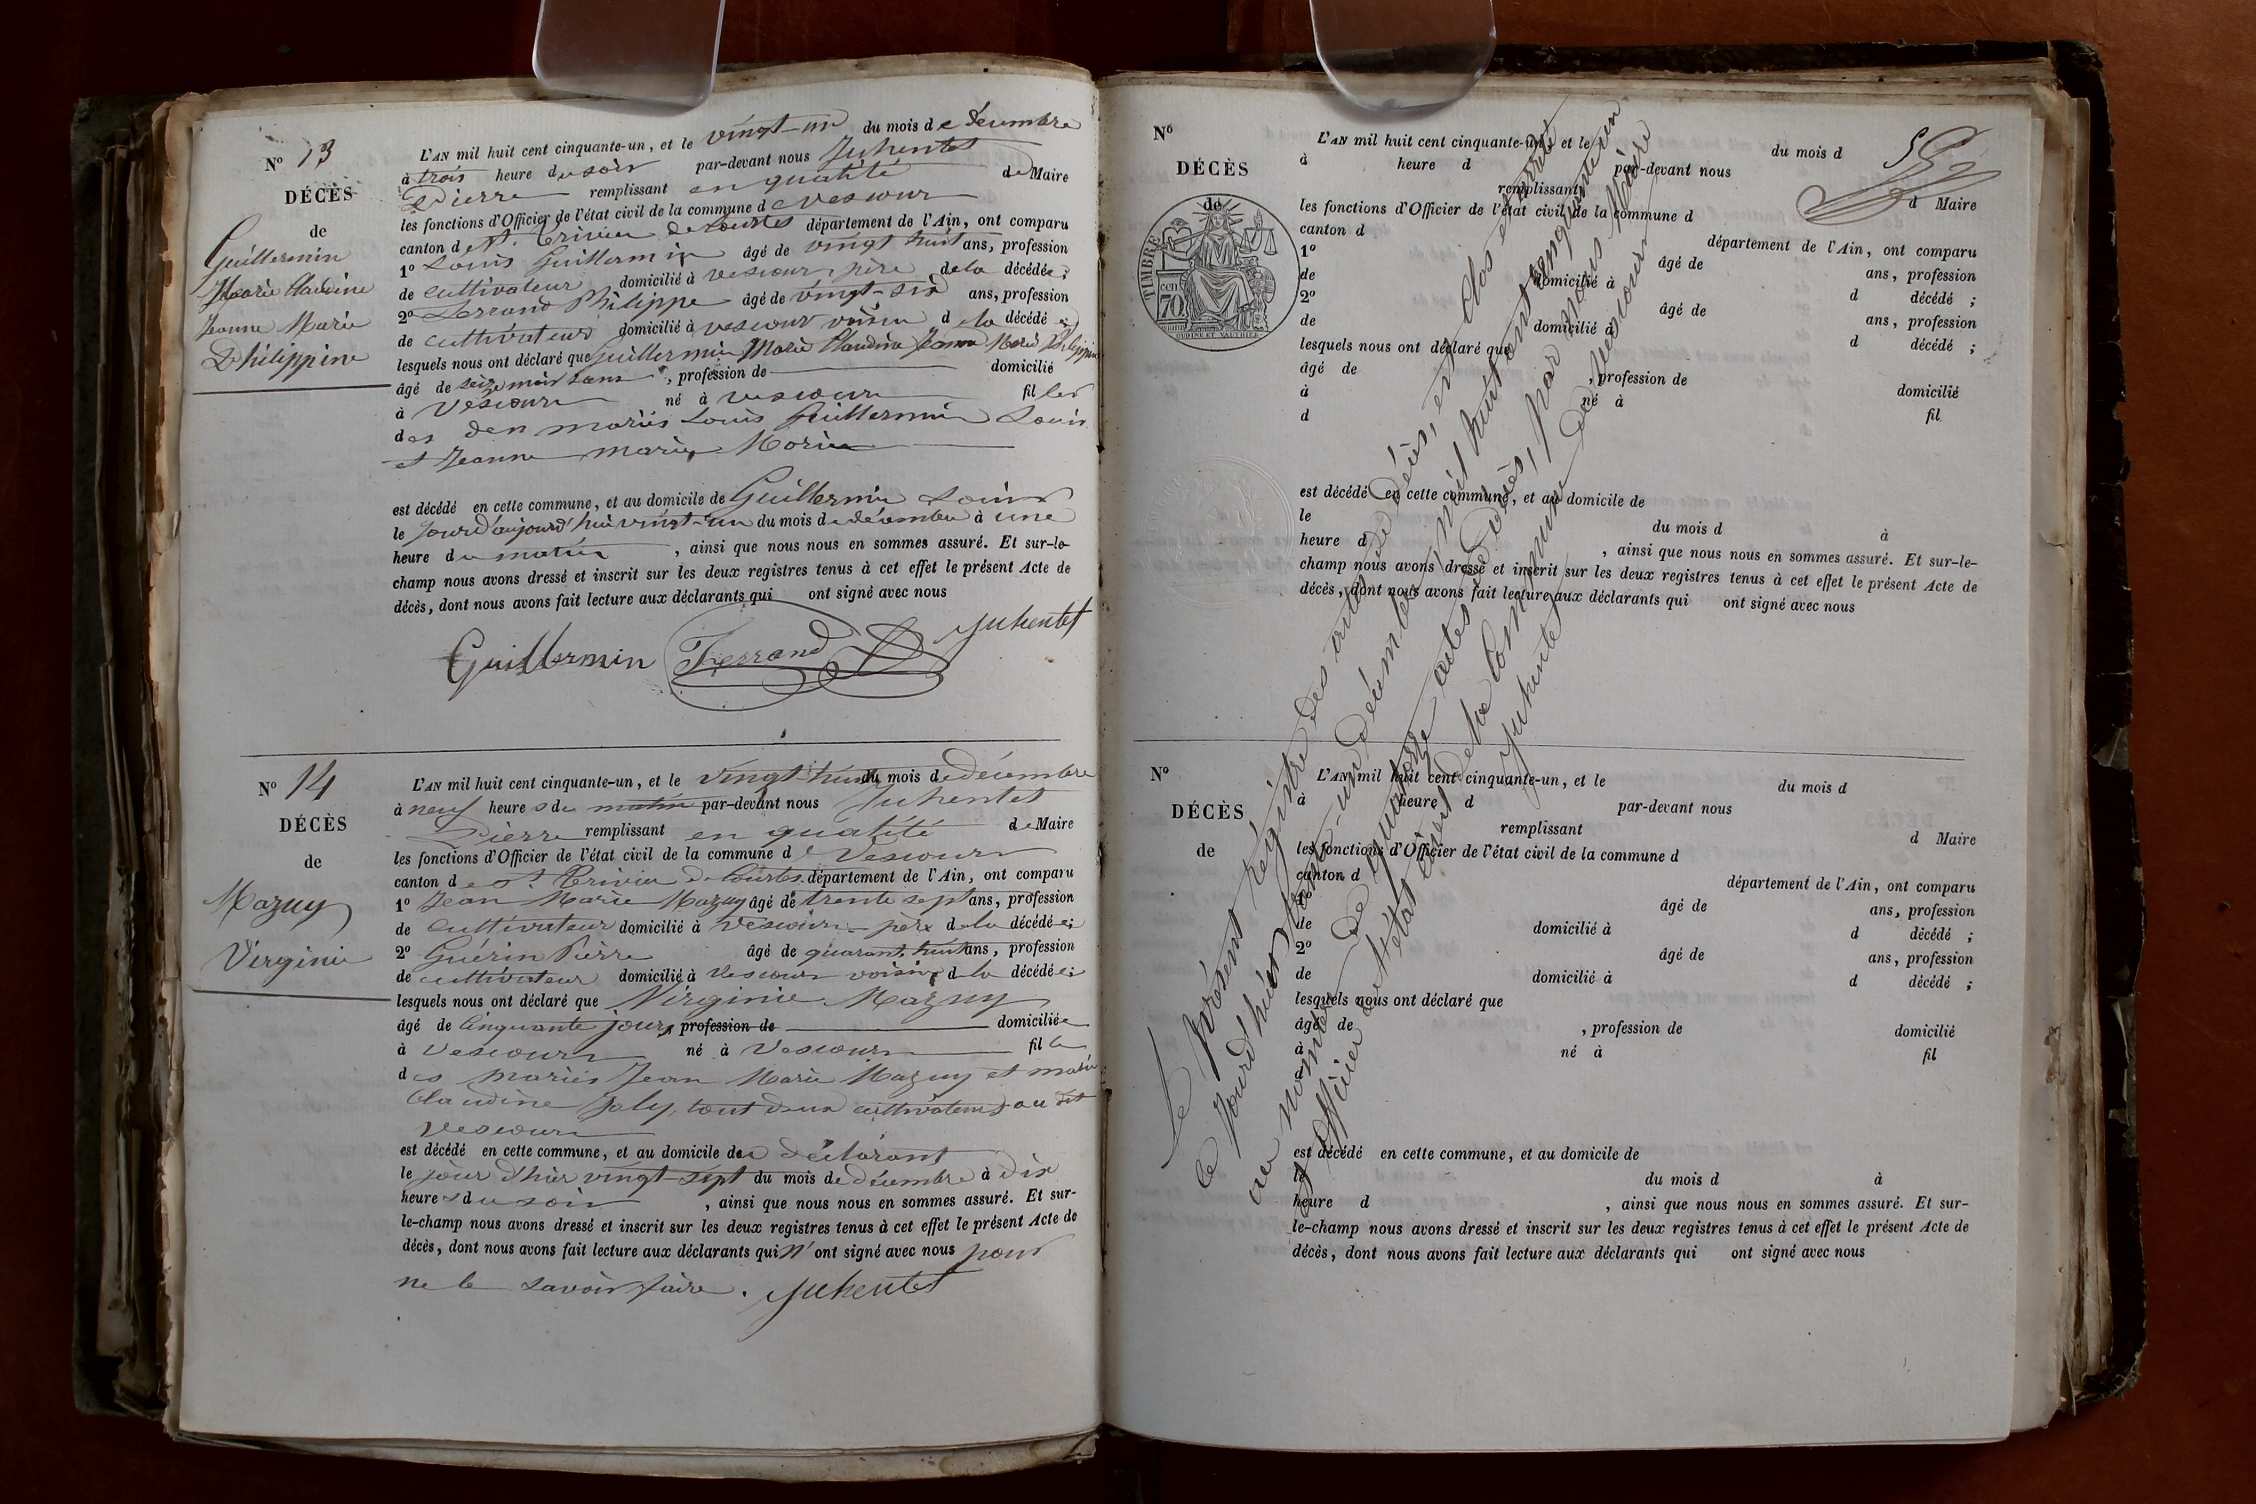 N° 13
DÉCÈS
de
Guillermin
Marie Claudine
Jeanne Marie
Philippine
L'AN mil huit cent cinquante-un, et le vingt-un du mois de décembre
à trois heure du soir par-devant nous Juhentet
Pierre remplissant en qualité de Maire
les fonctions d'Officier de l'état civil de la commune de Vescour
canton de St. Trivier de Courtes département de l'Ain, ont comparu
1° Louis Guillermin âgé de vingt huit ans, profession
de cultivateur domicilié à vescour, père de la décédée;
2° Ferrand Philippe âgé de vingt-six ans, profession
de cultivateur domicilié à vescour voisin de la décédée;
lesquels nous ont déclaré que Guillermin Marie Claudine Jeanne Marie Philippine
âgé de seize mois sans, profession de domicilié
à Vescour né à vescour fille
des mariés Louis Guillermin Louis
et Jeanne marie Morin
est décédé en cette commune, et au domicile de Guillermin Louis
le Jour d'aujourd'hui vingt-un du mois de décembre à une
heure du matin, ainsi que nous nous en sommes assuré. Et sur-le-
champ nous avons dressé et inscrit sur les deux registres tenus à cet effet le présent Acte de
décès, dont nous avons fait lecture aux déclarants qui ont signé avec nous
Juhentet
Guillermin Ferrand
N° 14
DÉCÈS
de
Mazuy
Virginie
L'AN mil huit cent cinquante-un, et le vingt-huit du mois de décembre
à neuf heures du matin par-devant nous Juhentet
Pierre remplissant en qualité de Maire
les fonctions d'Officier de l'état civil de la commune de Vescour
canton de St. Trivier de Courtes département de l'Ain, ont comparu
1° Jean Marie Mazuy âgé de trente sept ans, profession
de cultivateur domicilié à Vescour père de la décédée;
2° Guérin Pierre âgé de quarante huit ans, profession
de cultivateur domicilié à Vescour voisin de la décédée;
lesquels nous ont déclaré que Virginie Mazuy
âgé de Cinquante jours, profession de domiciliée
à Vescour né à Vescour fille
des mariés Jean Marie Mazuy et marie
Claudine Joly, tout deux cultivateurs au dit
Vescour
est décédé en cette commune, et au domicile du déclarant
le jour d'hier vingt-sept du mois de décembre à dix
heures du soir, ainsi que nous nous en sommes assuré. Et sur-
le-champ nous avons dressé et inscrit sur les deux registres tenus à cet effet le présent Acte de
décès, dont nous avons fait lecture aux déclarants qui n'ont signé avec nous pour
ne le savoir faire. Juhentet
N°
DÉCÈS
de
TIMBRE
70 cen
L'AN mil huit cent cinquante-un, et le du mois d
à heure d par-devant nous
remplissant d Maire
les fonctions d'Officier de l'état civil de la commune d
canton d département de l'Ain, ont comparu
1° âgé de ans, profession
de domicilié à d décédé ;
2° âgé de ans, profession
de domicilié à d décédé ;
lesquels nous ont déclaré que
âgé de , profession de domicilié
à né à fil
d
est décédé en cette commune, et au domicile de
le du mois d à
heure d , ainsi que nous nous en sommes assuré. Et sur-le-
champ nous avons dressé et inscrit sur les deux registres tenus à cet effet le présent Acte de
décès, dont nous avons fait lecture aux déclarants qui ont signé avec nous
N°
DÉCÈS
de
L'AN mil huit cent cinquante-un, et le du mois d
à heure d par-devant nous
remplissant d Maire
les fonctions d'Officier de l'état civil de la commune d
canton d département de l'Ain, ont comparu
1° âgé de ans, profession
de domicilié à d décédé ;
2° âgé de ans, profession
de domicilié à d décédé ;
lesquels nous ont déclaré que
âgé de , profession de domicilié
à né à fil
d
est décédé en cette commune, et au domicile de
le du mois d à
heure d , ainsi que nous nous en sommes assuré. Et sur-
le-champ nous avons dressé et inscrit sur les deux registres tenus à cet effet le présent Acte de
décès, dont nous avons fait lecture aux déclarants qui ont signé avec nous
Le présent Régistre des actes de décès, est clos et arrêté
le Jourd'hui trente-un décembre mil huit cent cinquante un
au nombre de quatorze actes de décès, par nous Maire
et officier de l'état civil de la Commune de Vescour
Juhentet